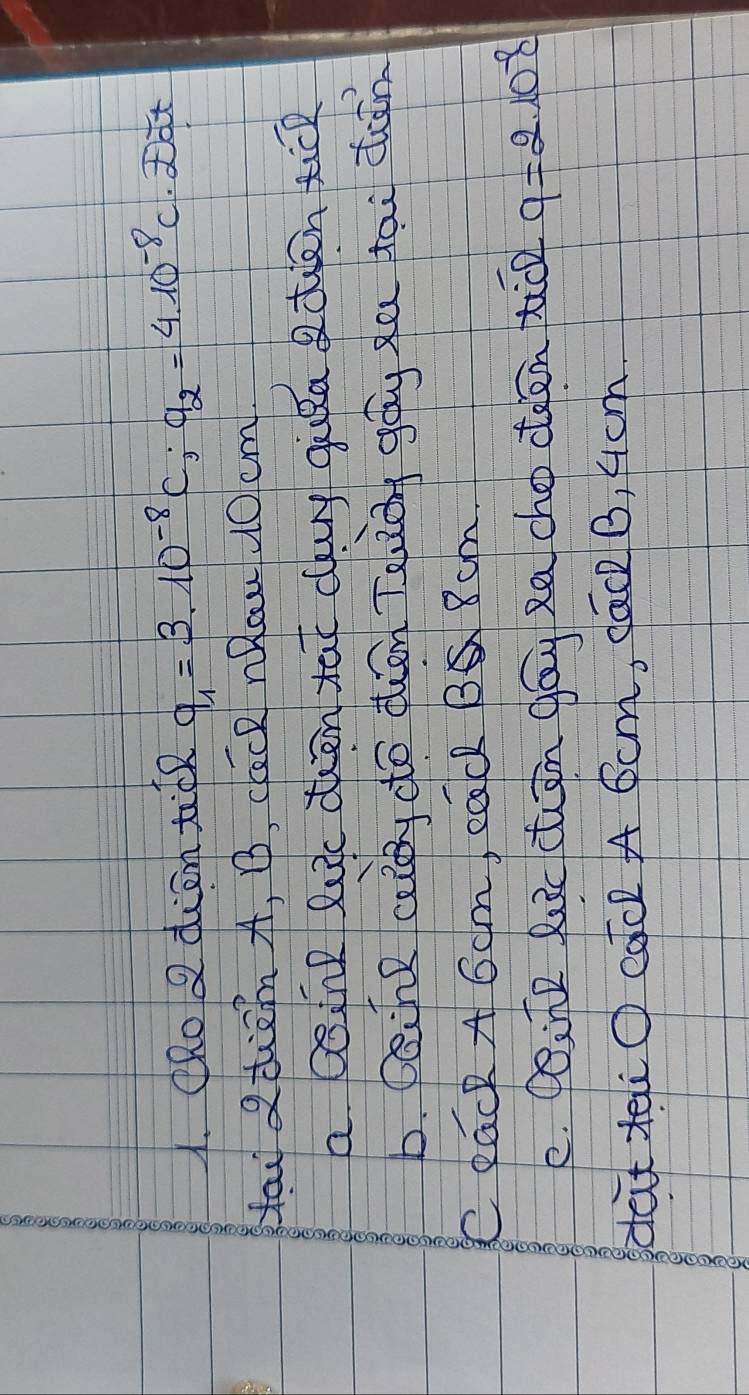 1. Cho 2 điện tích q₁ = 3.10⁻⁸C; q₂ = 4.10⁻⁸C. Đặt
tại 2 điểm A, B, cách nhau 10cm.
a. Tính lực điện tác dụng giữa 2 điện tích
b. Tính cường độ điện Trường gây ra tại điểm
C cách A 6cm, cách B 8cm.
c. Tính lực điện gây ra cho điện tích q = 2.10⁻⁸
đặt tại O cách A 6cm, cách B, 4cm.